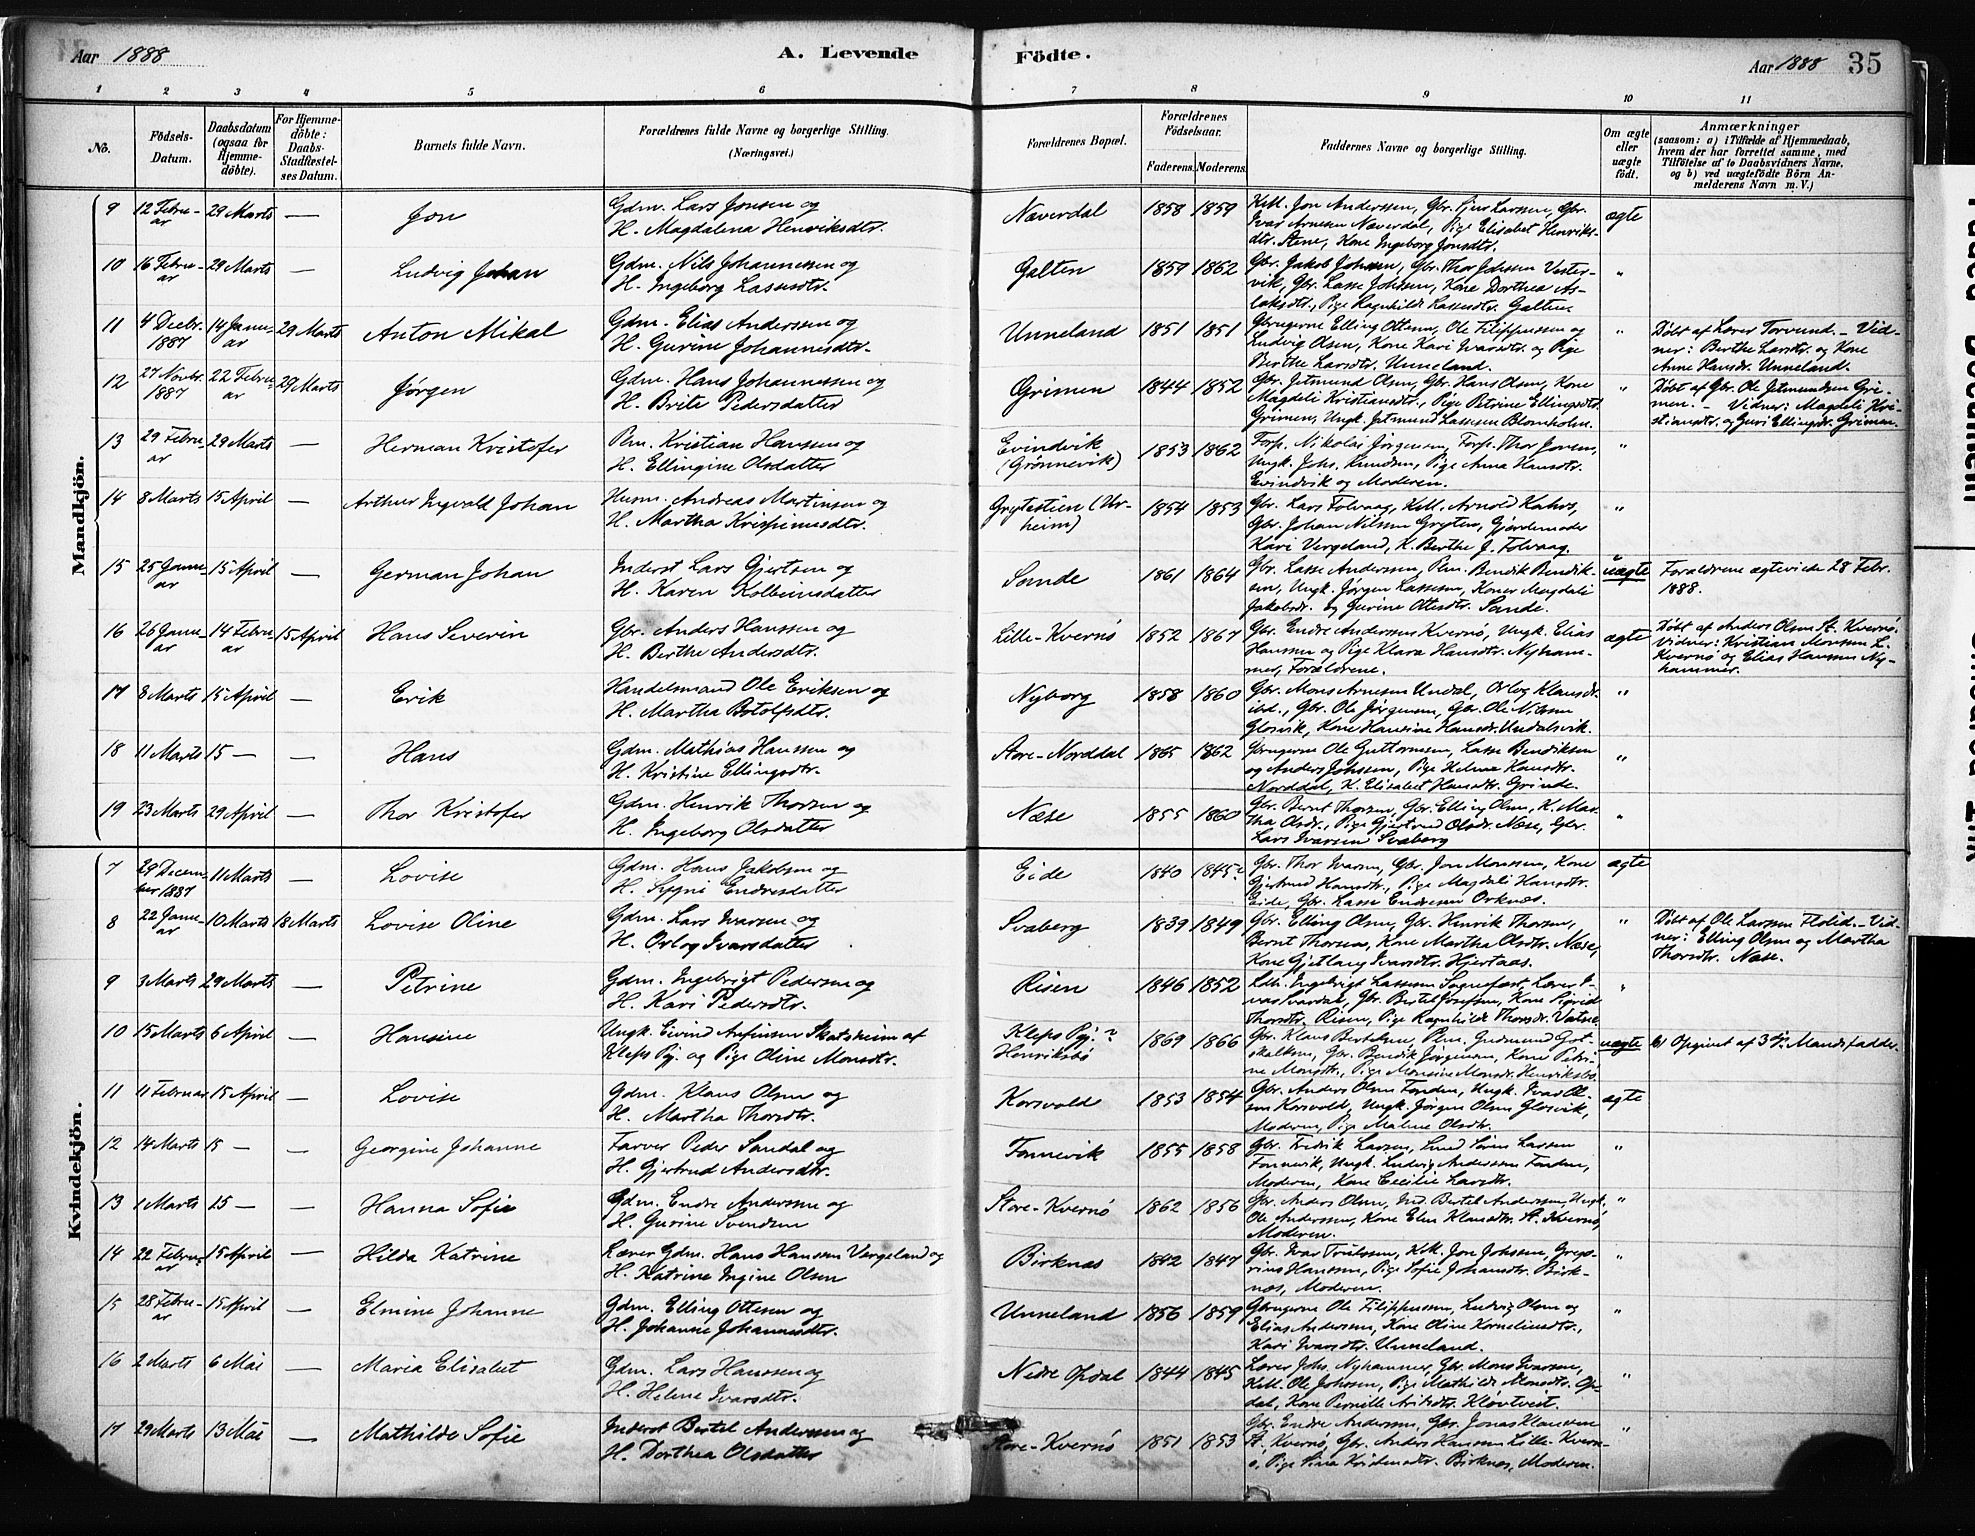 Aar 1888
A. Levende
Födte.
Aar 1888 35
1 2 3 4 5 6 7 8 9 10 11
No.
Födsels-
Datum.
Daabsdatum
(ogsaa for
Hjemme-
döbte).
For Hjemme-
döbte:
Daabs-
Stadfæstel-
ses Datum.
Barnets fulde Navn.
Forældrenes fulde Navne og borgerlige Stilling.
(Næringsvei.)
Forældrenes Bopæl.
Forældrenes
Födselsaar.
Faderens. Moderens.
Faddernes Navne og borgerlige Stilling.
Om ægte
eller
uægte
födt.
Anmærkninger
(saasom: a) i Tilfælde af Hjemmedaab,
hvem der har forrettet samme, med
Tilföielse af to Daabsvidners Navne,
og b) ved uægtefödte Börn An-
melderens Navn m. V.)
Mandkjön.
9 12 Febru-
ar 29 Marts — Jon Gdm. Lars Jonsen og
H. Magdalena Henriksdtr. Næverdal 1858 1859 Kill. Jon Anderssen, Gbr. Larssen, Gbr.
Ivar Arnesen Næverdal, Pige Elisabet Henriks-
dtr. Aene, Kone Ingeborg Jonsdtr. ægte
10 16 Febru-
ar 29 Marts — Ludvig Johan Gdm. Nils Johannessen og
H. Ingeborg Lassesdtr. Galten 1859 1862 Gbr. Jakob Johnsen, Gbr. Thor Johnsen Vester-
vik, Gbr. Lasse Johnsen, Kone Dorthea As-
laksdtr., Pige Ragnhilde Lassesdtr. Galten. "
11 4 Decbr.
1887 14 Janu-
ar 29 Marts Anton Mikal Gdm. Elias Anderssen og
H. Gurine Johannesdtr. Unneland 1851 1851 Gbrugerne Elling Ottesen, Ole Filippussen og
Ludvig Olsen, Kone Kari Ivarsdtr. og Pige
Berthe Larsdtr. Unneland. " Döbt af Lærer Torvund. – Vid-
ner: Berthe Larsdtr. og Kone
Anne Hansdr. Unneland.
12 27 Novbr.
1887 22 Febru-
ar 29 Marts Jørgen Gdm. Hans Johannessen og
H. Brite Pedersdatter Grimen 1844 1852 Gbr. Jetmund Olsen, Gbr. Hans Olsen, Kone
Magdeli Kristiansdtr., Pige Petrine Ellingsdtr.
Grimen, Ungk. Jetmund Lassesen Blomholm. " Döbt af Gbr. Ole Jetmundsen Gri-
men. – Vidner: Magdeli Kri-
stiansdtr. og Guri Ellingsdtr. Grimen.
13 29 Febru-
ar 29 Marts — Herman Kristofer Plm. Kristian Hansen og
H. Ellingine Olsdatter Evindvik
(Grønnevik) 1853 1862 Forp. Nikolai Jørgensen, Forp. Thor Jovens,
Ungk. Johs. Knudsen, Pige Anna Hansdtr.
Evindvik og Moderen. "
14 8 Marts 15 April — Arthur Ingvald Johan Husm. Andreas Martinsen og
H. Martha Krispinusdtr. Grytestien (Ur-
heim) 1854 1853 Gbr. Lars Folvaag, Kill. Arnold Kahrs,
Gbr. Johan Nilsen Gryten, Gjordemoder
Kari Vergeland, K. Berthe J. Folvaag. "
15 25 Janu-
ar 15 April — German Johan Inderst Lars Gjertsen og
H. Karen Kolbeinsdatter Sande 1861 1864 Gbr. Lasse Anderssen, Plm. Bendik Bendik-
sen, Ungk. Jørgen Lassesen, Koner Magdeli
Jakobsdr. og Gurine Ottesdtr. Sande. uægte Forældrene ægteviede 28 Febr.
1888.
16 26 Janu-
ar 14 Febru-
ar 15 April Hans Severin Gbr. Anders Hanssen og
H. Berthe Andersdtr. Lille-Kvernø 1852 1867 Gbr. Endre Anderssen Kvernø, Ungk. Elias
Hanssen og Pige Klara Hansdtr. Nyham-
mer, Forældrene. ægte Döbt af Anders Olsen St. Kvernø.
Vidner: Kristian Monssen L.
Kvernø og Elias Hanssen Ny-
hammer.
17 8 Marts 15 April — Erik Handelsmand Ole Eriksen og
H. Martha Botolfsdtr. Nyborg 1858 1860 Gbr. Mons Arnesen Undal, Orlog Klausdr.
ibd., Gbr. Ole Jørgensen, Gbr. Ole Nilsen
Glosvik, Kone Hansine Hansdr. Undalsvik. "
18 11 Marts 15 — — Hans Gdm. Mathias Hanssen og
H. Kristine Ellingsdtr. Store-Norddal 1865 1862 Gbrugerne Ole Guttormsen, Lasse Bendiksen
og Anders Johssen, Pige Helene Hansdtr.
Norddal, K. Elisabet Hansdtr. Grinde. "
19 23 Marts 29 April — Thor Kristofer Gdm. Henrik Thorsen og
H. Ingeborg Olsdatter Næse 1855 1860 Gbr. Bernt Thorsen, Gbr. Elling Olsen, K. Mar-
tha Olsdr., Pige Gjertrud Olsdr. Næse, Gbr.
Lars Ivarsen Svaberg "
Kvindekjön.
7 29 Decem-
ber 1887 11 Marts — Lovise Gdm. Hans Jakobsen og
H. Signi Endresdatter Eide 1840 1845? Gbr. Thor Ivarsen, Gbr. Jon Monssen, Kone
Gjertrud Hansdtr., Pige Magdeli Hansdtr.
Eide, Gbr. Lasse Endresen Orknes. ægte
8 22 Janu-
ar 10 Marts 18 Marts Lovise Oline Gdm. Lars Ivarsen og
H. Orlog Ivarsdatter Svaberg 1839 1849 Gbr. Elling Olsen, Gbr. Henrik Thorsen,
Bernt Thorsen, Kone Martha Olsdtr. Næse,
Kone Gjetlaug Ivarsdtr. Hjertaas. " Döbt af Ole Larssen Flolid. – Vid-
ner: Elling Olsen og Martha
Thorsdtr. Næse.
9 3 Marts 29 Marts — Petrine Gdm. Ingebrigt Pedersen og
H. Kari Pedersdtr. Risen 1846 1852 Ldh. Ingebrigt Lassesen Sognefæst, Lærer I-
var Svardal, Gbr. Bertel Josefsen, Kone Sigrid
Thorsdtr. Risen, Pige Ragnhilde Thorsdr. Vatne. "
10 15 Marts 6 April — Hansine Ungk. Eivind Arfinsen Skatsheim af
Kleps Pgj. og Pige Oline Monsdtr. Kleps Pgj.?
Henriksbø 1869 1866 Gbr. Klaus Bertelsen, Plm. Gudmund Got-
skalksen, Gbr. Bendik Jørgensen, Kone Petri-
ne Monsdtr., Pige Monsine Monsdr. Henriksbø. uægte b) Opgivet af 3 Mandsfadder.
11 11 Februar 15 April — Lovise Gdm. Klaus Olsen og
H. Martha Thorsdtr. Korsvold 1853 1854 Gbr. Anders Olsen Tonden, Ungk. Ivar Ol-
sen Korsvold, Ungk. Jørgen Olsen Glosvik,
Moderen, Pige Malene Olsdtr. ægte
12 14 Marts 15 — — Georgine Johanne Farver Peder Sandal og
H. Gjertrud Andersdtr. Tonnevik 1855 1858 Gbr. Fredrik Larsen, Smed Søren Larsen
Tonnevik, Ungk. Ludvig Anderssen Tonden,
Moderen, Kone Cecilie Larsdtr. "
13 1 Marts 15 — — Hanna Sofie Gdm. Endre Anderssen og
H. Gurine Svendsen Store-Kvernø 1862 1856 Gbr. Anders Olsen, Ind. Bertel Anderssen, Ungk.
Ole Anderssen, Kone Elen Klausdtr. St. Kvernø,
Moderen. "
14 22 Febru-
ar 15 April — Hilda Katrine Lærer Gdm. Hans Hanssen Vergeland og
H. Katrine Ingine Olsen Birknæs 1842 1847 Gbr. Ivar Truldssen, Kill. Jon Johssen, Grego-
rius Hanssen, Pige Sofie Johansdtr. Birk-
næs, Moderen. "
15 28 Febru-
ar 15 April — Elmine Johanne Gdm. Elling Ottesen og
H. Johanne Johannesdtr. Unneland 1856 1859 Gbrugerne Ole Filippussen, Ludvig Olsen og
Elias Andersen, Kone Oline Korneliusdtr.,
Kari Ivarsdtr. Unneland. "
16 2 Marts 6 Mai — Maria Elisabet Gdm. Lars Hanssen og
H. Helene Ivarsdtr. Nedre Opdal 1844 1845 Lærer Johs. Nyhammer, Gbr. Mons Ivarsen,
Kill. Ole Johssen, Pige Mathilde Monsdtr. Op-
dal, Kone Pernille Arilsdtr. Kløvtveit. "
17 29 Marts 13 Mai — Mathilde Sofie Inderst Bertel Anderssen og
H. Dorthea Olsdatter Store-Kvernø 1851 1853 Gbr. Endre Andersen, Gbr. Jonas Klausen
St. Kvernø, Gbr. Anders Hanssen Lille-Kvern-
ø, Pige Sina Kristensdtr. Birknes, Moderen. "